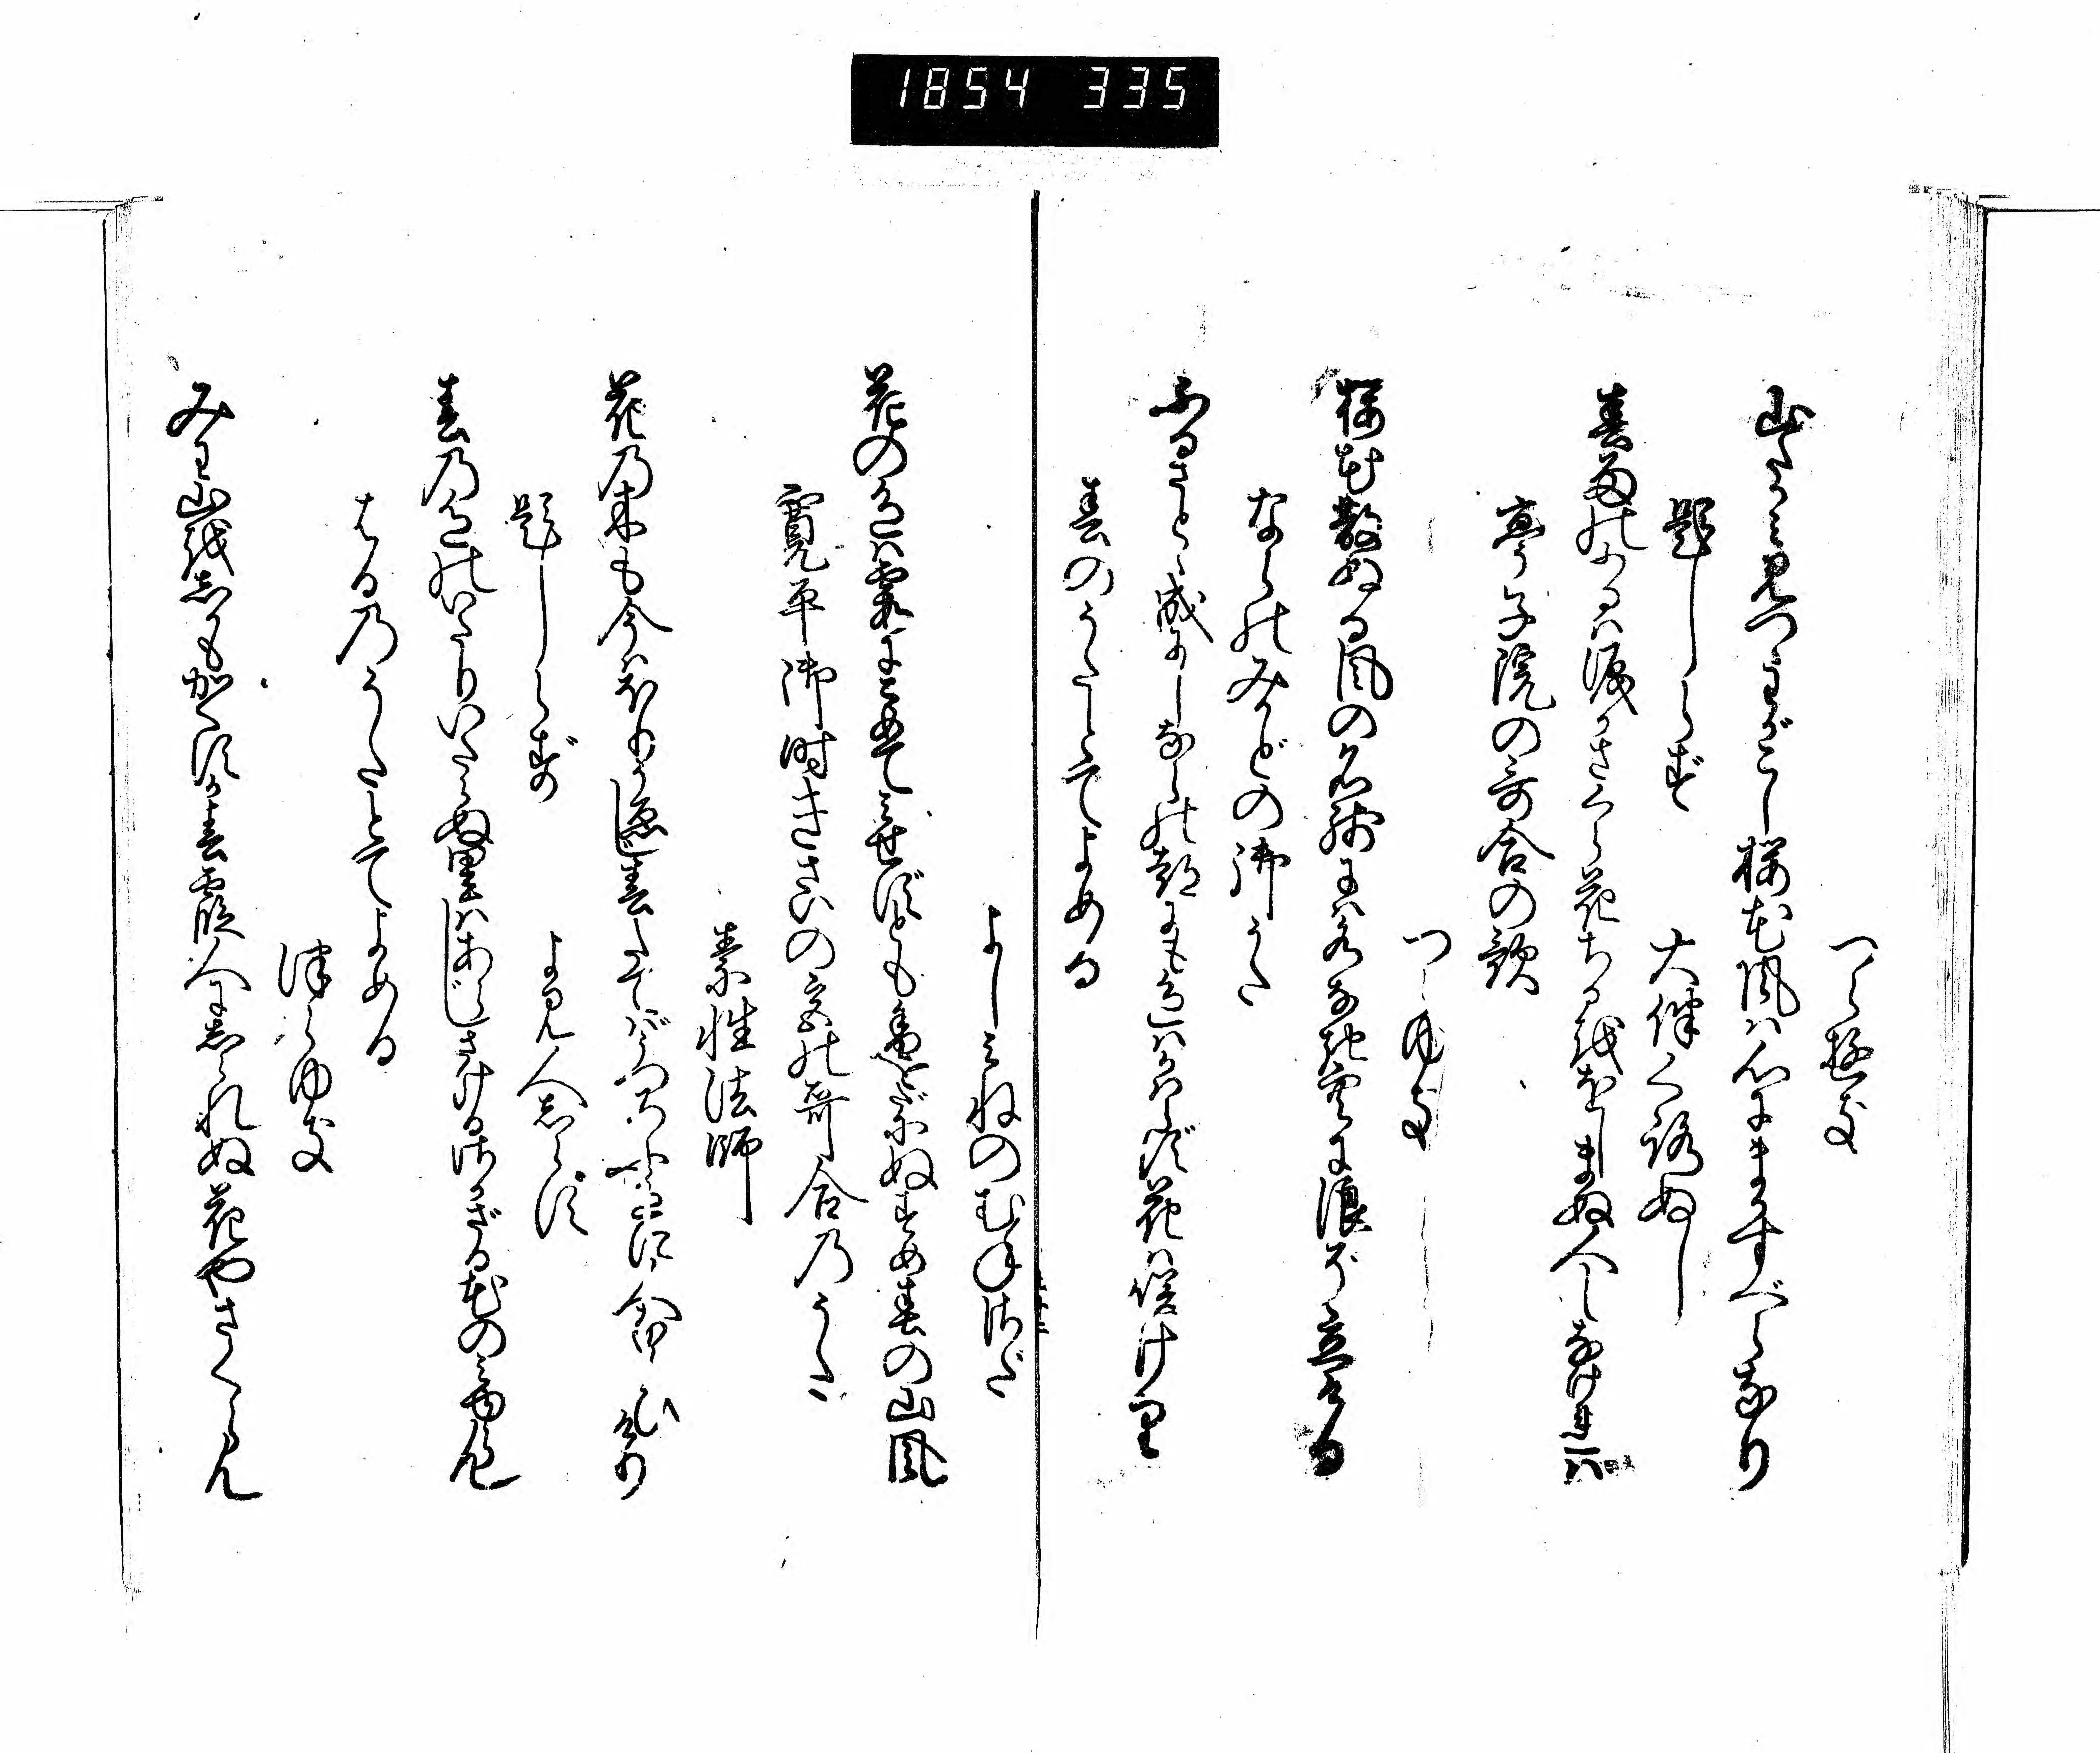 1854 335
つらゆき
山たかみ見つゝわがこし桜花風は心にまかすべらなり
題しらず
大伴くろぬし
春雨のふるは涙かさくら花ちるををしまぬ人しなければ
亭子院の哥合の歌
つらゆき
桜花散ぬる風の名残には水なき空に浪ぞ立ける
ならのみかどの御うた
ふるさとゝ成にしならの都にも色はかはらず花は咲けり
春のうたとてよめる
よしみねのむねさだ
花の色は霞にこめてみせずとも香をだにぬすめ春の山風
寛平御時きさいの宮の哥合のうた
素性法師
花の木も今はほりうゑじ春たてばうつろふ色に人ならひけり
題しらず
よみ人しらず
春の色のいたりいたらぬ里はあらじさけるさかざる花のみゆらん
はるのうたとてよめる
つらゆき
みわ山をしかもかくすか春霞人にしられぬ花やさくらん